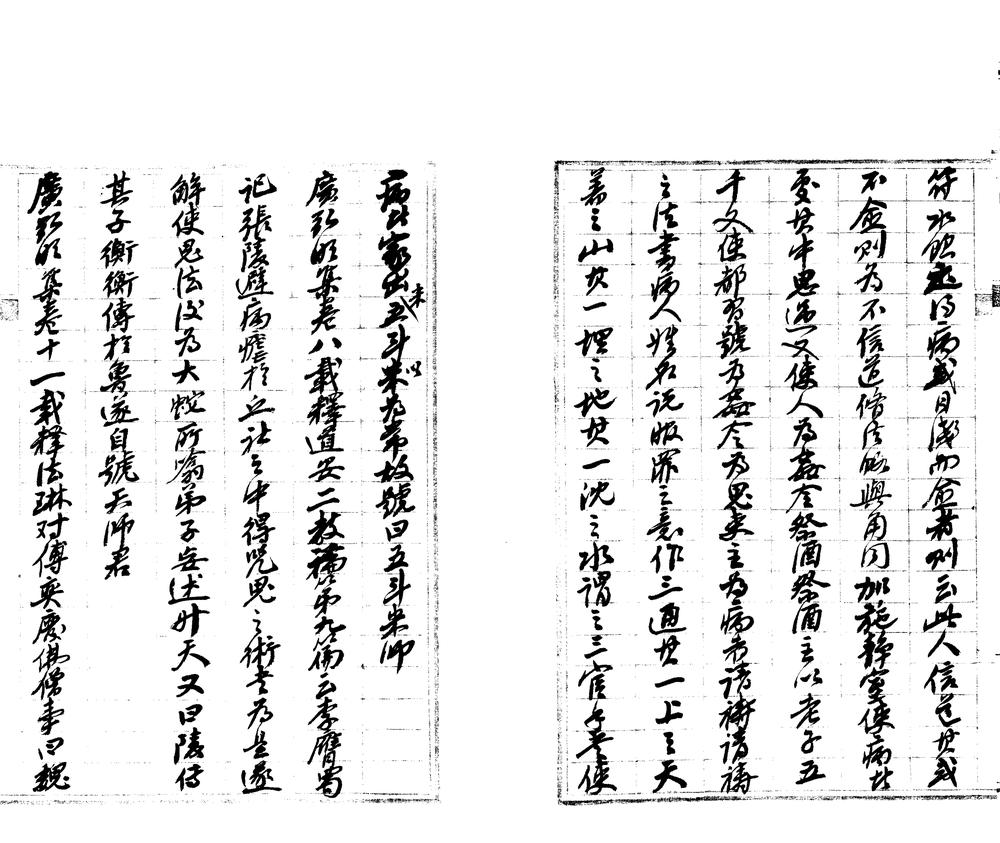 符水飲之得病或日淺而愈者則云此人信道其或
不愈則為不信道脩法略與角同加施靜室使病者
處其中思過又使人為姦令祭酒祭酒主以老子五
千文使都習號為姦令為鬼吏主為病者請禱請禱
之法書病人姓名說服罪之意作三通其一上之天
著之山其一埋之地其一沈之水謂之三官手書使
病者家出五斗米以為常故號曰五斗米師
廣弘明集卷八載釋道安二教論第九篇云李膺蜀
記張陵避病瘧於丘社之中得咒鬼之術書為是遂
解使鬼法後為大蛇所噏弟子妄述升天又曰陵傳
其子衡衡傳於魯遂自號天師君
廣弘明集卷十一載釋法琳对傅奕廢佛僧事曰魏